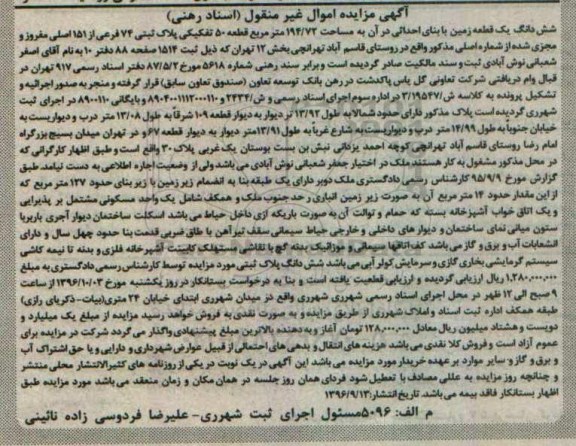 آگهی مزایده اموال غیر منقول (اسناد رهنی)
شش دانگ یک قطعه زمین با بنای احداثی در آن به مساحت ۱۹۴/۷۲ متر مربع قطعه ۵۰ تفکیکی پلاک ثبتی ۷۴ فرعی از ۱۵۱ اصلی مفروز و
مجزی شده از شماره اصلی مذکور واقع در روستای قاسم آباد تهرانچی بخش ۱۲ تهران که ذیل ثبت ۱۵۱۴ صفحه ۸۸ دفتر ۱۰ به نام آقای اصغر
شعبانی نوش آبادی ثبت و سند مالکیت صادر گردیده است و برابر سند رهنی شماره ۵۶۱۸ مورخ ۸۷/۵/۲ دفتر اسناد رسمی ۹۱۷ تهران در
قبال وام دریافتی شرکت تعاونی گل یاس پاکدشت در رهن بانک توسعه تعاون (صندوق تعاون سابق) قرار گرفته و منجر به صدور اجرائیه و
تشکیل پرونده به کلاسه ش/۳/۱۹۵۴۷ در اداره سوم اجرای اسناد رسمی و ش/۲۴۳۴ و ۸۹۰۴۰۰۱۱۱۲۰۰۰۱۱۰ و بایگانی ۸۹۰۰۱۱۰ در اجرای ثبت
شهرری گردیده است پلاک مذکور دارای حدود شمالا به طول ۱۳/۹۲ متر دیوار به دیوار قطعه ۱۰۹ شرقاً به طول ۱۳/۰۸ متر درب و دیواریست به
خیابان جنوباً به طول ۱۴/۹۹ متر درب و دیواریست به شارع غرباً به طول ۱۳/۹۱ متر دیوار به دیوار قطعه ۶۷ و در تهران میدان بسیج بزرگراه
امام رضا روستای قاسم آباد تهرانچی کوچه احمد یزدانی نبش بن بست بوستان یک غربی پلاک ۳۰ واقع است و طبق اظهار کارگرانی که
در محل مذکور مشغول به کار هستند ملک در اختیار جعفر شعبانی نوش آبادی می باشد ولی از وضعیت اجاره اطلاعی به دست نیامد. طبق
گزارش مورخ ۹۵/۹/۹ کارشناس رسمی دادگستری ملک دوبر دارای یک طبقه بنا به انضمام زیر زمین با زیر بنای حدود ۱۳۷ متر مربع که
از این مقدار حدود ۱۴ متر مربع آن به صورت زیر زمین انباری در حد جنوب ملک و همکف شامل یک واحد مسکونی مشتمل بر پذیرایی
و یک اتاق خواب آشپزخانه بسته که حمام و توالت آن به صورت باریکه ازی داخل حیاط می باشد اسکلت ساختمان دیوار آجری باربر با
ستون میانی نمای ساختمان و دیوار های داخلی و خارجی حیاط سیمانی سقف تیرآهن با طاق ضربی قدمت بنا حدود چهل سال و دارای
انشعابات آب و برق و گاز می باشد کف اتاقها سیمانی و موزائیک بدنه گچ با نقاشی مستهلک کابینت آشپزخانه فلزی و بدنه تا نیمه کاشی
سیستم گرمایشی بخاری گازی و سرمایش کولر آبی می باشد شش دانگ پلاک ثبتی مورد مزایده توسط کارشناس رسمی دادگستری به مبلغ
۱،۲۸۰،۰۰۰،۰۰۰ ریال ارزیابی گردیده و ارزیابی قطعیت یافته است و بنا به درخواست بستانکار در روز یکشنبه مورخ ۱۳۹۶/۱۰/۰۳ از ساعت
۹ صبح الی ۱۲ ظهر در محل اجرای اسناد رسمی شهرری شهرری واقع در میدان شهرری ابتدای خیابان ۲۴ متری(بیات-ذکریای رازی)
طبقه همکف اداره ثبت اسناد و املاک شهرری از طریق مزایده و به صورت نقدی به فروش خواهد رسید مزایده از مبلغ یک میلیارد و
دویست و هشتاد میلیون ریال معادل ۱۲۸،۰۰۰،۰۰۰ تومان آغاز و به دهنده بالاترین مبلغ پیشنهادی واگذار می گردد شرکت در مزایده برای
عموم آزاد است و فروش کلا نقدی می باشد. هزینه های انتقال و بدهی های احتمالی از قبیل عوارض شهرداری و دارایی و یا حق اشتراک آب
و برق و گاز و سایر موارد بر عهده خریدار مورد مزایده می باشد این آگهی در یک نوبت در یکی از روزنامه های کثیرالانتشار محلی منتشر
و چنانچه روز مزایده به عللی مصادف با تعطیل شود فردای همان روز جلسه در همان مکان و زمان منعقد می باشد مورد مزایده طبق
اظهار بستانکار فاقد بیمه می باشد. تاریخ انتشار:۱۳۹۶/۹/۱۳
م الف: ۵۰۹۶ مسئول اجرای ثبت شهرری- علیرضا فردوسی زاده نائینی